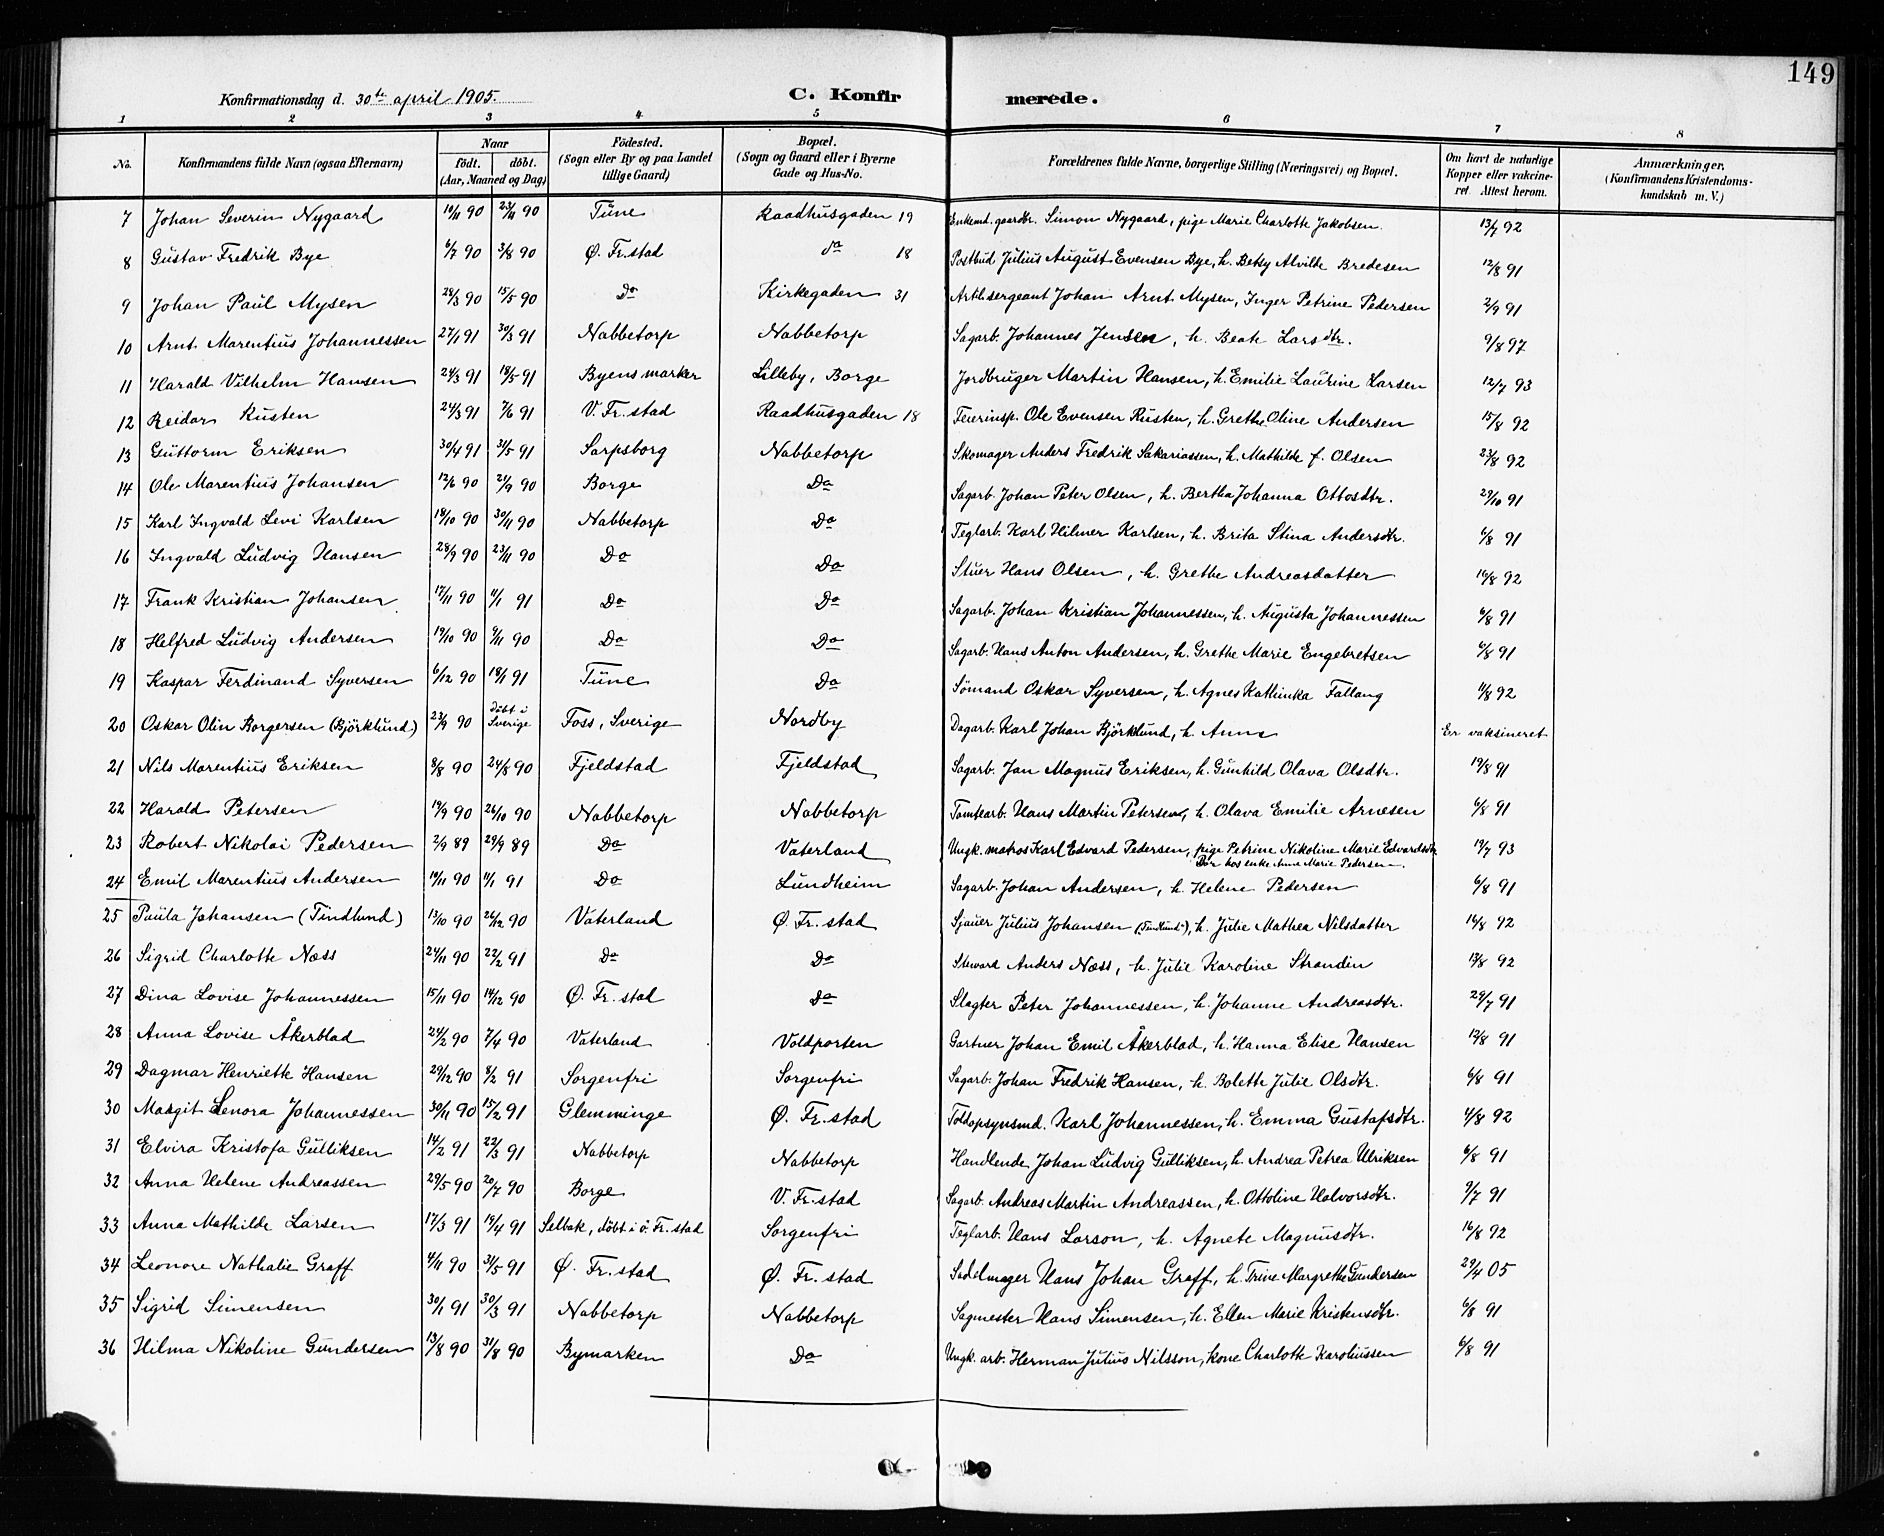 149
Konfirmationsdag d. 30te april 1905. C. Konfirmerede.
1 2 3 4 5 6 7 8
No. Konfirmandens fulde Navn (ogsaa Efternavn) Naar födt. döbt. (Aar, Maaned og Dag) Födested. (Sogn eller By og paa Landet tillige Gaard) Bopæl. (Sogn og Gaard eller i Byerne Gade og Hus-No. Forældrenes fulde Navne, borgerlige Stilling (Næringsvei) og Bopæl. Om havt de naturlige Kopper eller vakcineret. Attest herom. Anmærkninger, (Konfirmandens Kristendomskundskab m. V.)
7 Johan Severin Nygaard 10/11 90 23/11 90 Tune Raadhusgaden 19 Enkemd. gaardbr. Simon Nygaard, pige Marie Charlotte Jakobsen. 13/7 92
8 Gustav Fredrik Bye 6/7 90 3/8 90 Ø. Fr.stad do 18 Postbud Julius August Evensen Bye, h. Betsy Alvilde Bredesen 12/8 91
9 Johan Paul Mysen 28/3 90 15/5 90 Do Kirkegaden 31 Artil.sergeant Johan Arnt Mysen, Inger Petrine Pedersen 2/9 91
10 Arnt Marentius Johannessen 27/1 91 30/3 91 Nabbetorp Nabbetorp Sagarb. Johannes Jensen, h. Beate Larsdtr. 9/8 97
11 Harald Vilhelm Hansen 24/3 91 18/5 91 Byens marker Lilleby, Borge Jordbruger Martin Hansen, h. Emilie Laurine Larsen 12/7 93
12 Reidar Rusten 24/3 91 7/6 91 V. Fr.stad Raadhusgaden 18 Feierinsp. Ole Evensen Rusten, h. Grethe Oline Andersen 15/8 92
13 Guttorm Eriksen 30/4 91 31/5 91 Sarpsborg Nabbetorp Skomager Anders Fredrik Sakariassen, h. Mathilde f. Olsen 23/8 92
14 Ole Marentius Johansen 12/6 90 21/9 90 Borge Do Sagarb. Johan Peter Olsen, h. Bertha Johanna Ottosdtr. 29/10 91
15 Karl Ingvald Levi Karlsen 18/10 90 30/11 90 Nabbetorp Do Teglarb. Karl Hilmer Karlsen, h. Brita Stina Andersdtr. 6/8 91
16 Ingvald Ludvig Hansen 28/9 90 23/11 90 Do Do Stuer Hans Olsen, h. Grethe Andreasdatter 16/8 92
17 Frank Kristian Johansen 17/11 90 11/1 91 Do Do Sagarb. Johan Kristian Johannessen, h. Augusta Johannessen 6/8 91
18 Helfred Ludvig Andersen 19/10 90 9/11 90 Do Do Sagarb. Hans Anton Andersen, h. Grethe Marie Engebretsen 6/8 91
19 Kaspar Ferdinand Syversen 6/12 90 18/1 91 Tune Do Sömand Oskar Syversen, h. Agnes Kathinka Fallang 11/8 92
20 Oskar Olin Borgersen (Björklund) 27/9 90 döbt i Sverige Foss, Sverige Nordby Dagarb. Karl Johan Björklund, h. Anna Er vaksineret
21 Nils Marentius Eriksen 8/8 90 24/8 90 Fjeldstad Fjeldstad Sagarb. Jan Magnus Eriksen, h. Gunhild Olava Olsdtr. 19/8 91
22 Harald Petersen 19/9 90 26/10 90 Nabbetorp Nabbetorp Tomtearb. Hans Martin Petersen, h. Olava Emilie Arnesen 6/8 91
23 Robert Nikolai Pedersen 2/9 89 29/9 89 Do Vaterland Ungk. matros Karl Edvard Pedersen, pige Petrine Nikoline Marie Edvardsdtr 19/7 93
Bor hos enke Anne Marie Pedersen
24 Emil Marentius Andersen 19/11 90 11/1 91 Do Lundheim Sagarb. Johan Andersen, h. Helene Pedersen 6/8 91
25 Paula Johansen (Tindlund) 13/10 90 26/12 90 Vaterland Ø. Fr. stad Sjauer Julius Johansen (Tindlund), h. Julie Mathea Nilsdatter 16/8 92
26 Sigrid Charlotte Næss 24/11 90 22/2 91 Do Do Steward Anders Næss, h. Julie Karoline Strandin 13/8 92
27 Dina Lovise Johannessen 15/11 90 14/12 90 Ø. Fr. stad Do Slagter Peter Johannessen, h. Johanne Andreasdtr. 29/7 91
28 Anna Lovise Åkerblad 24/2 90 7/4 90 Vaterland Voldporten Gartner Johan Emil Åkerblad, h. Hanna Elise Hansen 12/8 91
29 Dagmar Henriette Hansen 29/12 90 8/2 91 Sorgenfri Sorgenfri Sagarb. Johan Fredrik Hansen, h. Bolette Julie Olsdtr. 6/8 91
30 Margit Lenora Johannessen 30/11 90 15/2 91 Glemminge Ø. Fr. stad Toldopsynsmd. Karl Johannessen, h. Emma Gustafsdtr. 4/8 92
31 Elvira Kristofa Gulliksen 14/2 91 22/3 91 Nabbetorp Nabbetorp Handlende Johan Ludvig Gulliksen, h. Andrea Petrea Ulriksen 6/8 91
32 Anna Helene Andreassen 29/5 90 20/7 90 Borge V. Fr. stad Sagarb. Andreas Martin Andreassen, h. Ottoline Halvorsdtr. 9/7 91
33 Anna Mathilde Larsen 17/3 91 19/4 91 Selbak, döbt i ö. Fr. stad Sorgenfri Teglarb. Hans Larson, h. Agnete Magnusdtr. 16/8 92
34 Leonore Nathalie Graff 4/11 90 31/5 91 Ø. Fr. stad Ø. Fr. stad Sadelmager Hans Johan Graff, h. Trine Margrethe Gundersen 29/4 05
35 Sigrid Simensen 30/1 91 30/3 91 Nabbetorp Nabbetorp Sagmester Hans Simensen, h. Ellen Marie Kristensdtr. 6/8 91
36 Hilma Nikoline Gundersen 13/8 90 31/8 90 Bymarken Do Ungk. arb. Herman Julius Nilsson, kone Charlotte Karoliussen 6/8 91